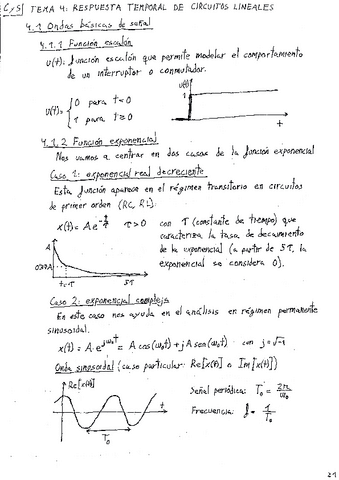 CyS| TEMA 4: RESPUESTA TEMPORAL DE CIRCUITOS LINEALES
4.1 Ondas básicas de señal
4.1.1 Función escalón
u(t): función escalón que permite modelar el comportamiento
de un interruptor o conmutador.
u(t)
u(t)= { 0 para t<0
1 para t≥0
1
t
4.1.2 Función exponencial
Nos vamos a centrar en dos casos de la función exponencial
Caso 1: exponencial real decreciente
Esta función aparece en el régimen transitorio en circuitos
de primer orden (RC, RL).
x(t) = A e^-t/τ τ>0 con τ (constante de tiempo) que
caracteriza la tasa de decaimiento
de la exponencial (a partir de 5τ, la
exponencial se considera 0).
A
t=τ 5τ
Caso 2: exponencial compleja
En este caso nos ayuda en el análisis en régimen permanente
sinusoidal.
x(t) = A·e^jω₀t = A cos(ω₀t) + j A sen(ω₀t) con j=√-1
Onda sinusoidal (caso particular: Re[x(t)] o Im[x(t)])
Re[x(t)]
t
T₀
Señal periódica: T₀ = 2π/ω₀
Frecuencia: f = 1/T₀